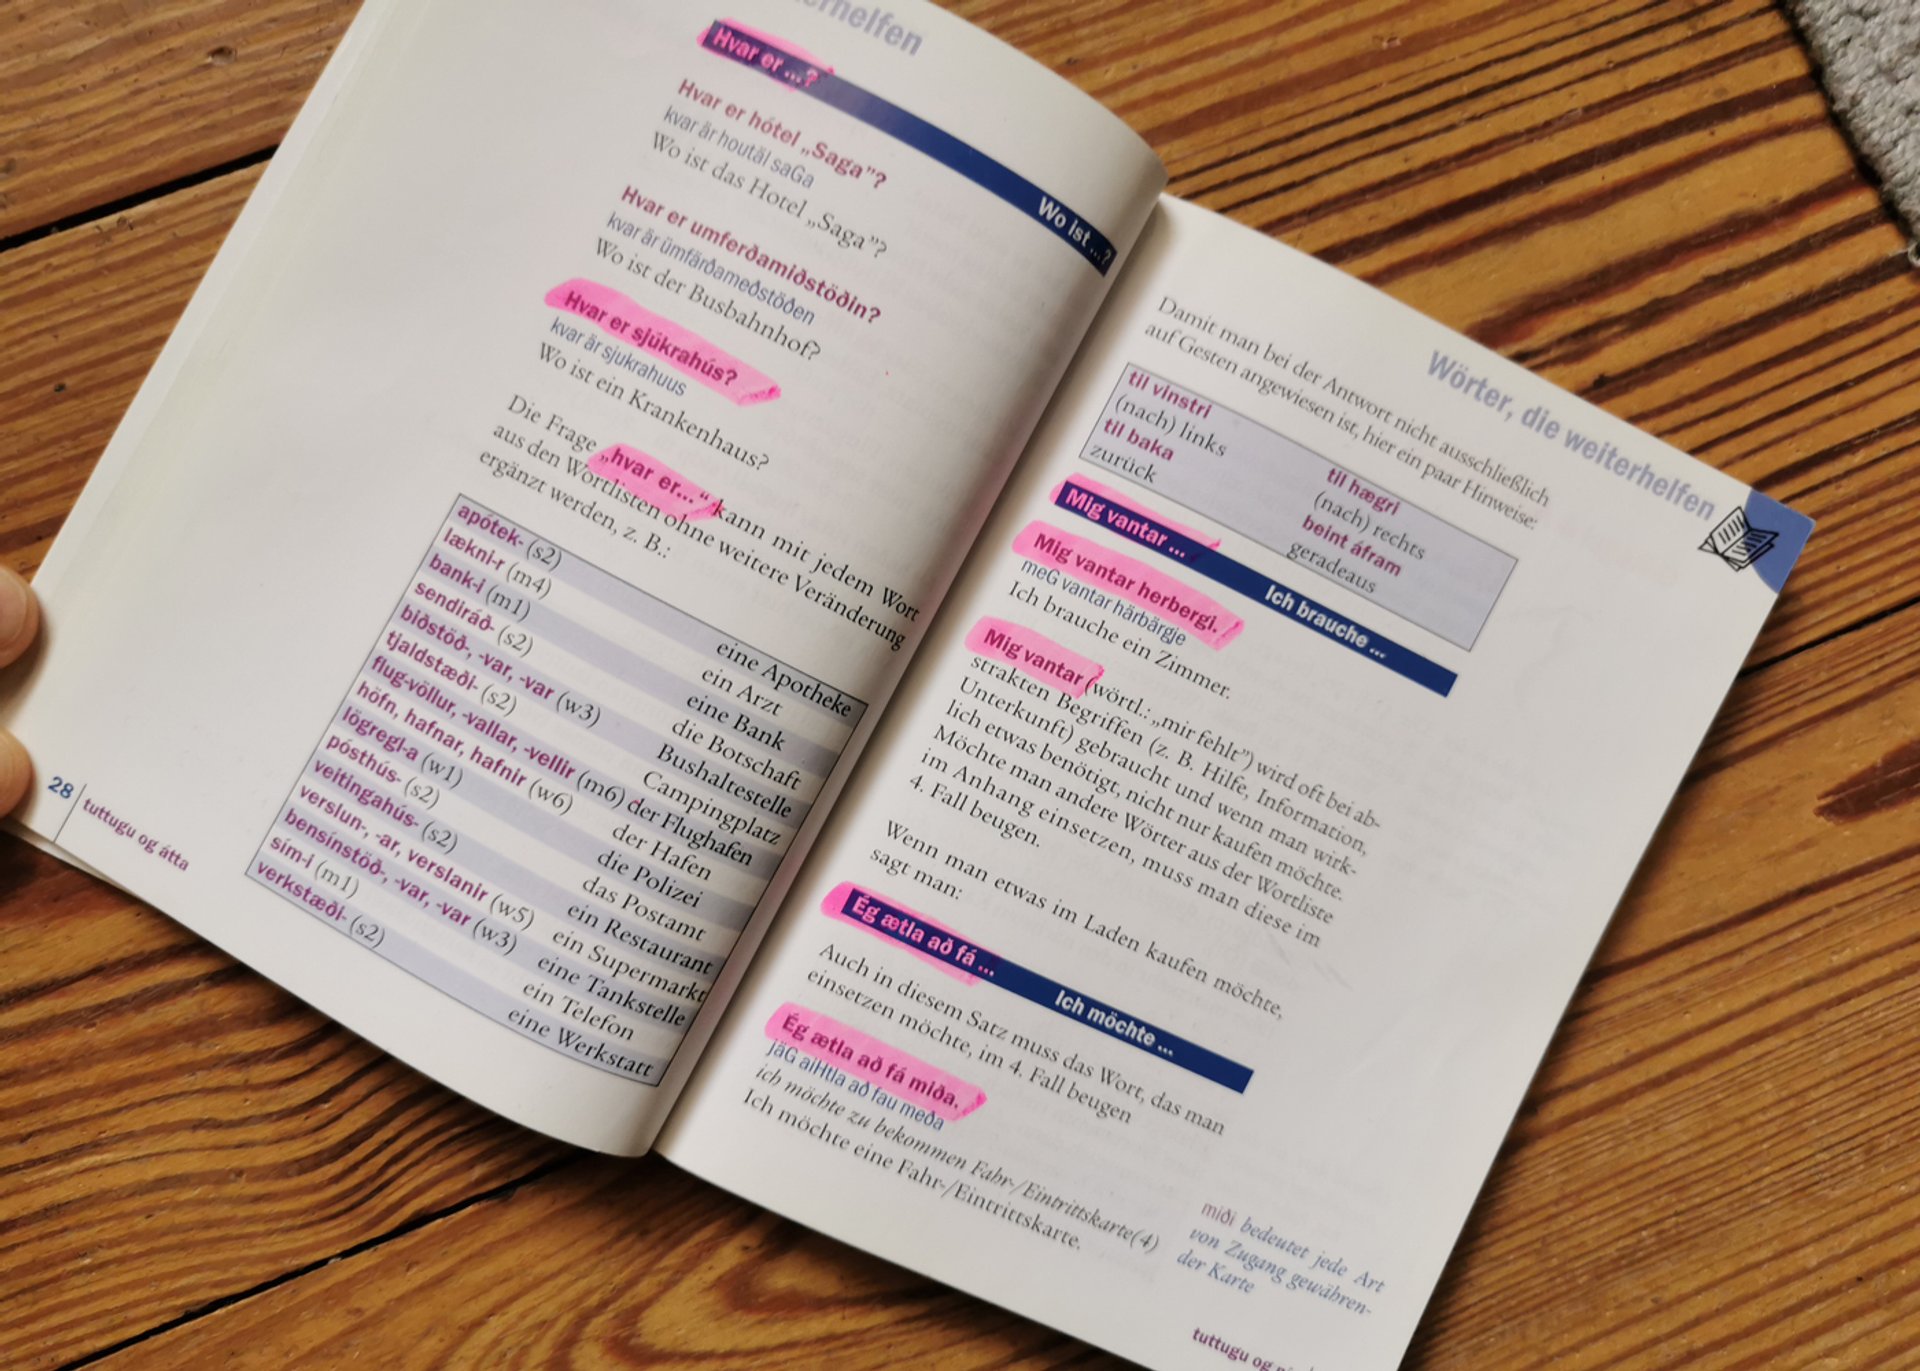 Hvar er ...?
Wo ist ...?
Hvar er hótel „Saga”?
kvar är houtäl saGa
Wo ist das Hotel „Saga”?
Hvar er umferðamiðstöðin?
kvar är ümfärðameðstöðen
Wo ist der Busbahnhof?
Hvar er sjúkrahús?
kvar är sjukrahuus
Wo ist ein Krankenhaus?
Die Frage „hvar er...“ kann mit jedem Wort
aus den Wortlisten ohne weitere Veränderung
ergänzt werden, z. B.:
apótek- (s2) eine Apotheke
lækni-r (m4) ein Arzt
bank-i (m1) eine Bank
sendiráð- (s2) die Botschaft
biðstöð-, -var, -var (w3) Bushaltestelle
tjaldstæði- (s2) Campingplatz
flug-völlur, -vallar, -vellir (m6) der Flughafen
höfn, hafnar, hafnir (w6) der Hafen
lögregl-a (w1) die Polizei
pósthús- (s2) das Postamt
veitingahús- (s2) ein Restaurant
verslun-, -ar, verslanir (w5) ein Supermarkt
bensínstöð-, -var, -var (w3) eine Tankstelle
sím-i (m1) ein Telefon
verkstæði- (s2) eine Werkstatt
28 tuttugu og átta
Wörter, die weiterhelfen
Damit man bei der Antwort nicht ausschließlich
auf Gesten angewiesen ist, hier ein paar Hinweise:
til vinstri til hægri
(nach) links (nach) rechts
til baka beint áfram
zurück geradeaus
Mig vantar ... Ich brauche ...
Mig vantar herbergi.
meG vantar härbärgje
Ich brauche ein Zimmer.
Mig vantar (wörtl.: „mir fehlt”) wird oft bei ab-
strakten Begriffen (z. B. Hilfe, Information,
Unterkunft) gebraucht und wenn man wirk-
lich etwas benötigt, nicht nur kaufen möchte.
Möchte man andere Wörter aus der Wortliste
im Anhang einsetzen, muss man diese im
4. Fall beugen.
Wenn man etwas im Laden kaufen möchte,
sagt man:
Ég ætla að fá ... Ich möchte ...
Auch in diesem Satz muss das Wort, das man
einsetzen möchte, im 4. Fall beugen
Ég ætla að fá miða.
jäG aiHtla að fau meða
ich möchte zu bekommen Fahr-/Eintrittskarte(4)
Ich möchte eine Fahr-/Eintrittskarte.
miði bedeutet jede Art
von Zugang gewähren-
der Karte
tuttugu og